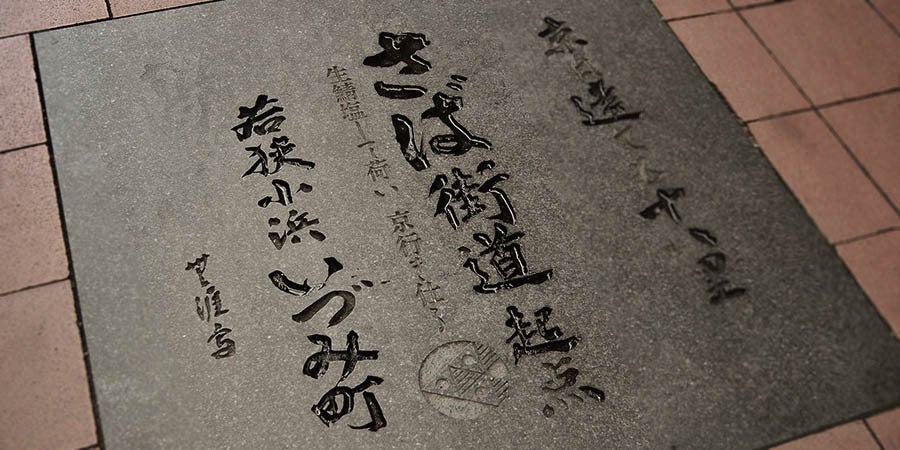 京は遠ても十八里
さば街道起点
生鯖塩して荷い 京行き仕る
若狭小浜
いづみ町